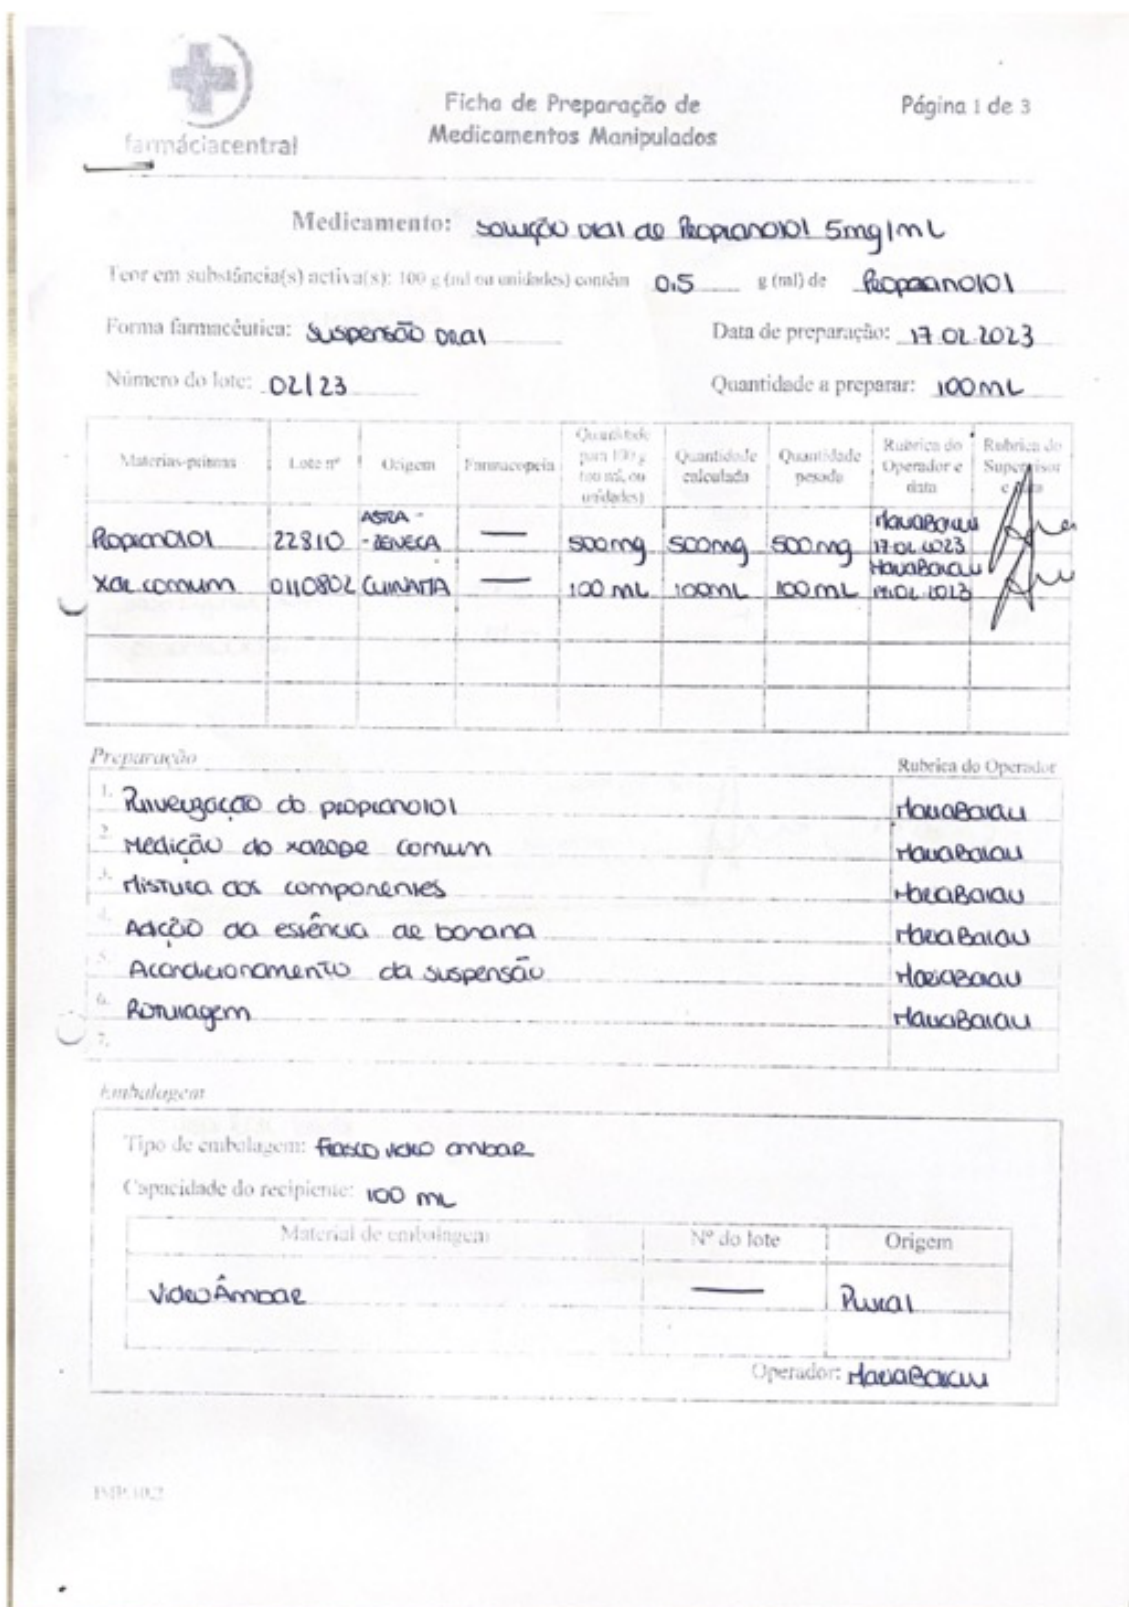 farmáciacentral
Ficha de Preparação de
Medicamentos Manipulados
Página 1 de 3
Medicamento: Solução oral de Propranolol 5mg/mL
Teor em substância(s) activa(s): 100 g (ml ou unidades) contêm 0,5 g (ml) de Propranolol
Forma farmacêutica: Suspensão oral Data de preparação: 17.02.2023
Número do lote: 02/23 Quantidade a preparar: 100mL
Matérias-primas Lote nº Origem Farmacopeia Quantidade para 100 g (ou ml, ou unidades) Quantidade calculada Quantidade pesada Rubrica do Operador e data Rubrica do Supervisor e data
Propranolol 22810 ASTRA-ZENECA — 500mg 500mg 500mg 17.02.2023
Xar. comum 0110802 — 100 mL 100mL 100mL 17.02.2023
Preparação Rubrica do Operador
1. Pulverização do propranolol
2. Medição do xarope comum
3. Mistura dos componentes
4. Adição da essência de banana
5. Acondicionamento da suspensão
6. Rotulagem
7.
Embalagem
Tipo de embalagem: Frasco vidro âmbar
Capacidade do recipiente: 100 mL
Material de embalagem Nº do lote Origem
Vidro Âmbar — Plural
Operador:
IMP.10.2